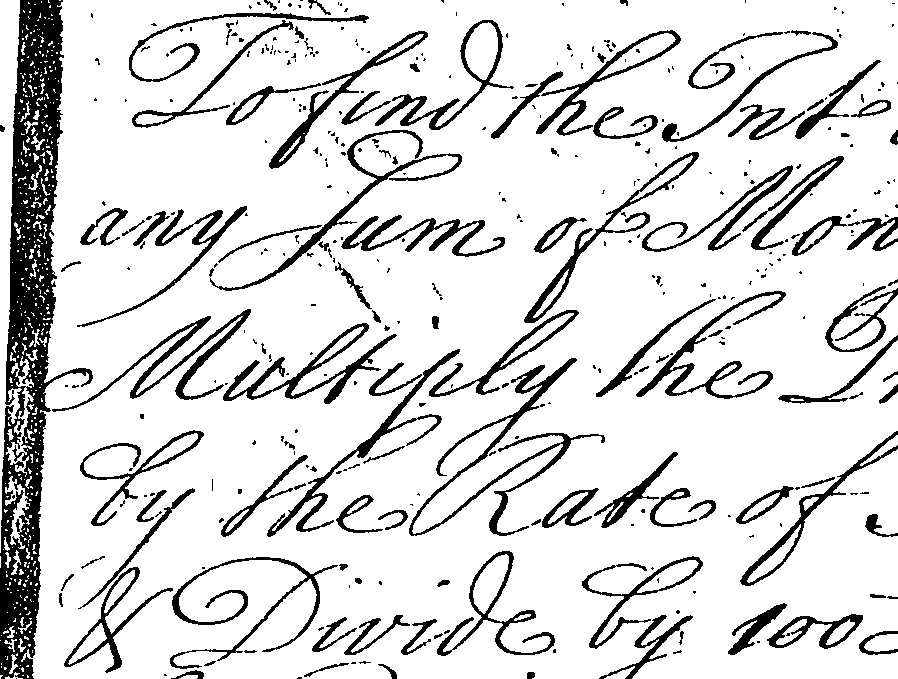 To find the Int
any Sum of Mon
Multiply the Pr
by the Rate of
& Divide by 100